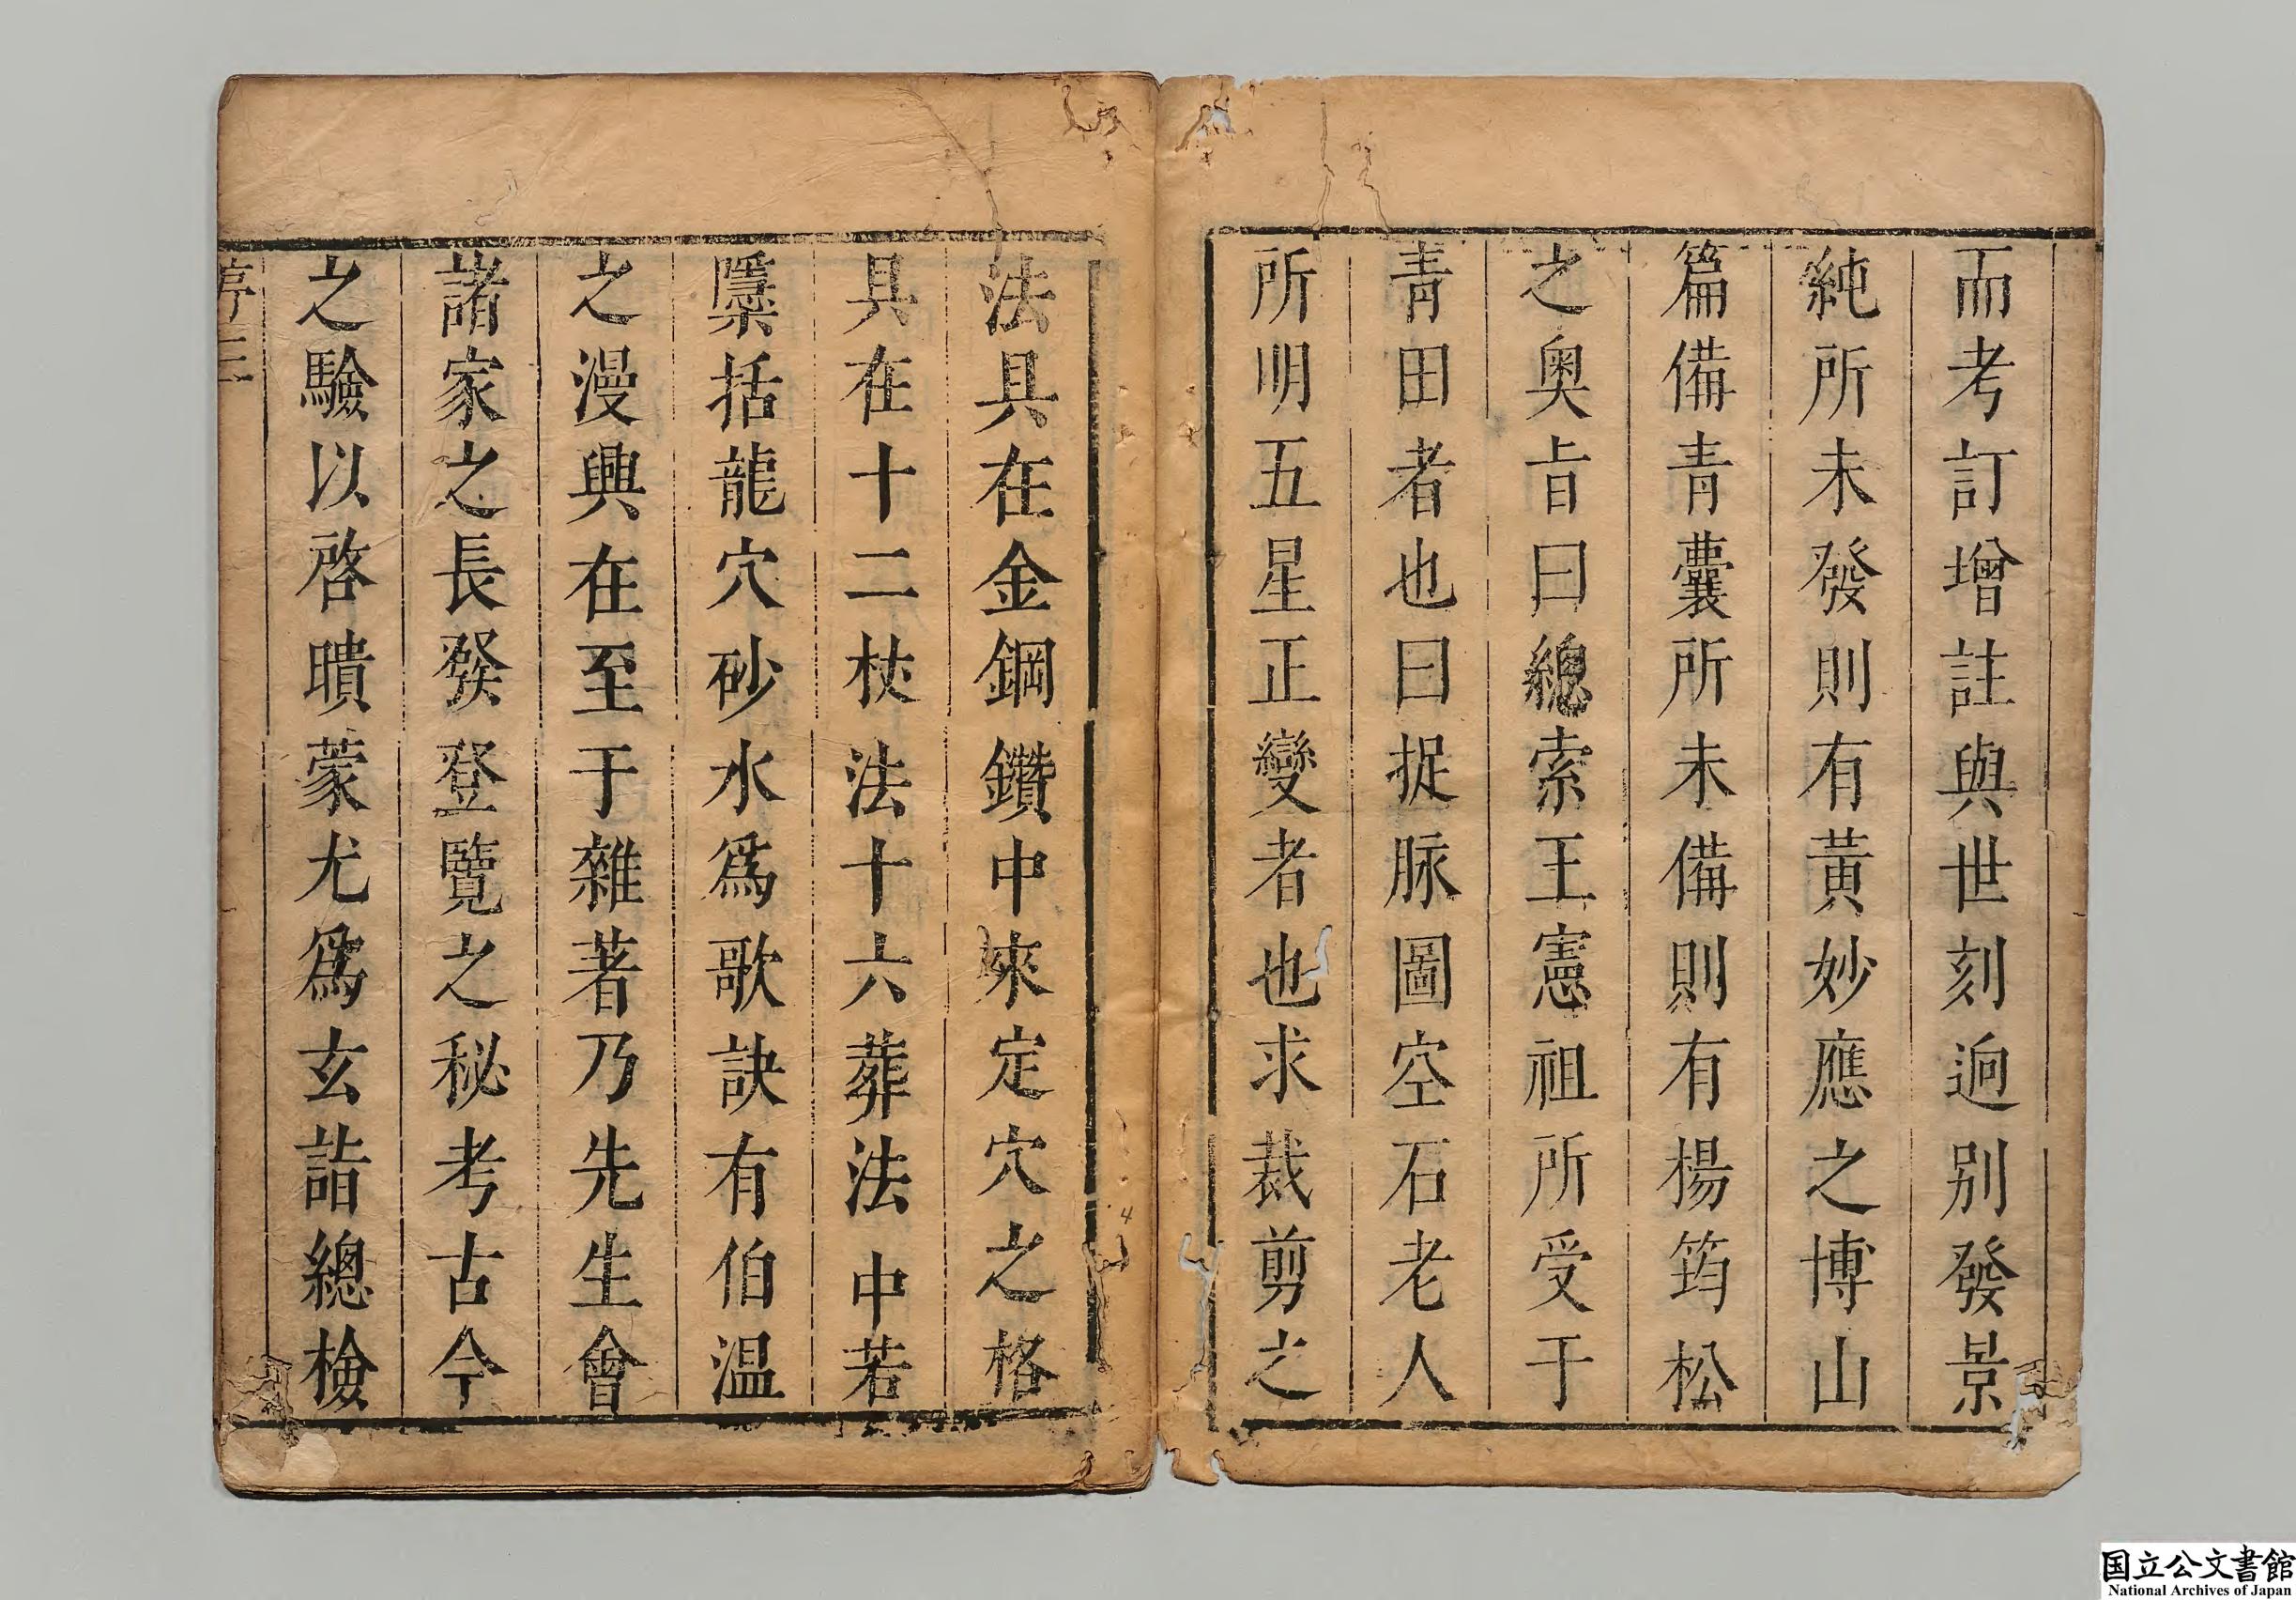 而考訂增註與世刻逈別發景
純所未發則有黃妙應之博山
篇備青囊所未備則有楊筠松
之奥旨曰總索王憲祖所受于
青田者也曰捉脉圖空石老人
所明五星正變者也求裁剪之
法具在金鋼鑽中來定穴之格
具在十二杖法十六葬法中若
檃括龍穴砂水爲歌訣有伯温
之漫興在至于雜著乃先生會
諸家之長發登覽之秘考古今
之驗以啓瞶蒙尤爲玄詣總檢
序三
4
国立公文書館
National Archives of Japan